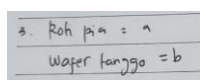 3. Roti pia = a
Wafer tanggo = b